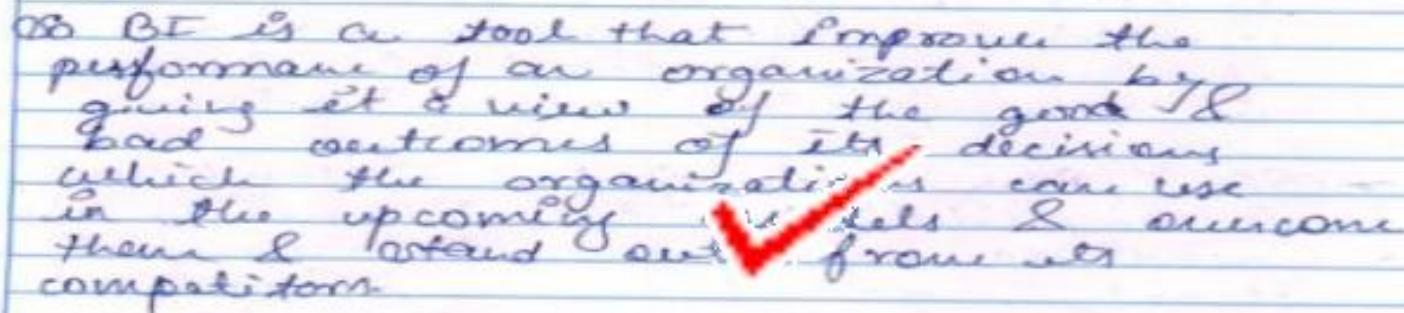 BI is a tool that improves the
performance of an organization by
giving it a view of the good &
bad outcomes of its decisions
which the organizations can use
in the upcoming & overcome
them & stand out from its
competitors.